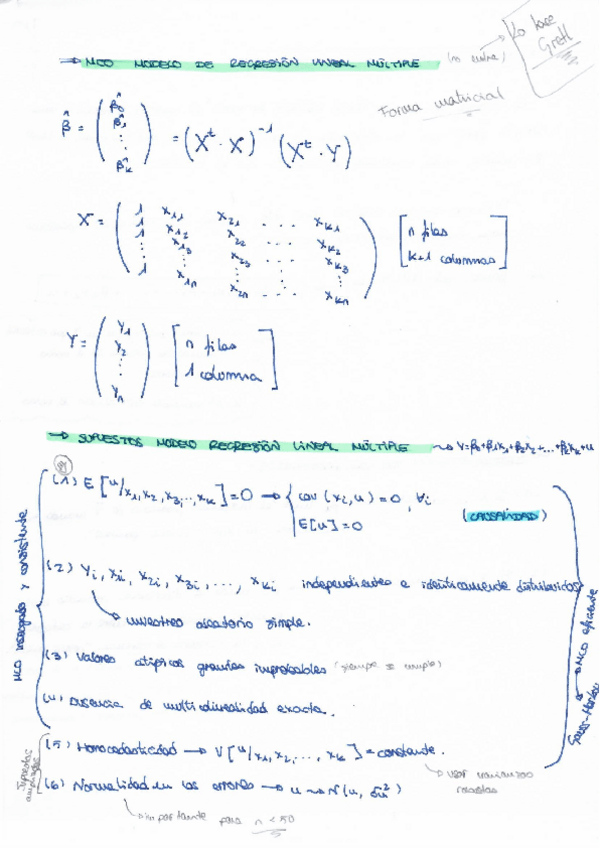 → MCO MODELO DE REGRESIÓN LINEAL MÚLTIPLE (no entra) → Lo hace Gretl
Forma matricial
β̂ = (β̂0 β̂1 ⋮ β̂k) = (Xᵗ · X)⁻¹ (Xᵗ · Y)
X = (
1 x11 x21 ... xk1
1 x12 x22 xk2
1 x13 x23 xk3
⋮ ⋮ ⋮ ⋮ ⋮
1 x1n x2n ... xkn
) [n filas
k+1 columnas]
Y = (y1 y2 ⋮ yn) [n filas
1 columna]
→ SUPUESTOS MODELO REGRESIÓN LINEAL MÚLTIPLE → Y=β0+β1x1+β2x2+...+βkxk+u
(1) E [u/x1,x2,x3,...,xk]=0 → { cov (xi,u) = 0, ∀i
E[u] = 0
(CAUSALIDAD)
(2) Yi, x1i, x2i, x3i, ..., xki independientes e idénticamente distribuidos
→ muestreo aleatorio simple.
(3) Valores atípicos grandes improbables (siempre se cumple)
(4) Ausencia de multicolinealidad exacta.
(5) Homocedasticidad → V[u/x1,x2,...,xk] = constante.
→ usar varianzas robustas
(6) Normalidad en los errores → u ~ N(u, σu²)
→ importante para n < 50
MCO insesgado y consistente
Supuestos ampliados
Gauss-Markov → MCO eficiente